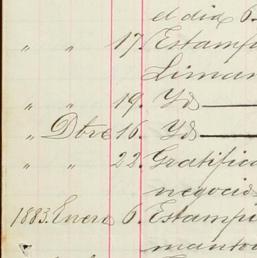 el dia 6
" " 17. Estampi
Liman
" " 19. Yd
" Dbre 16. Yd
" " 22. Gratifica
negocia
1883. Enero 6. Estampi
manto